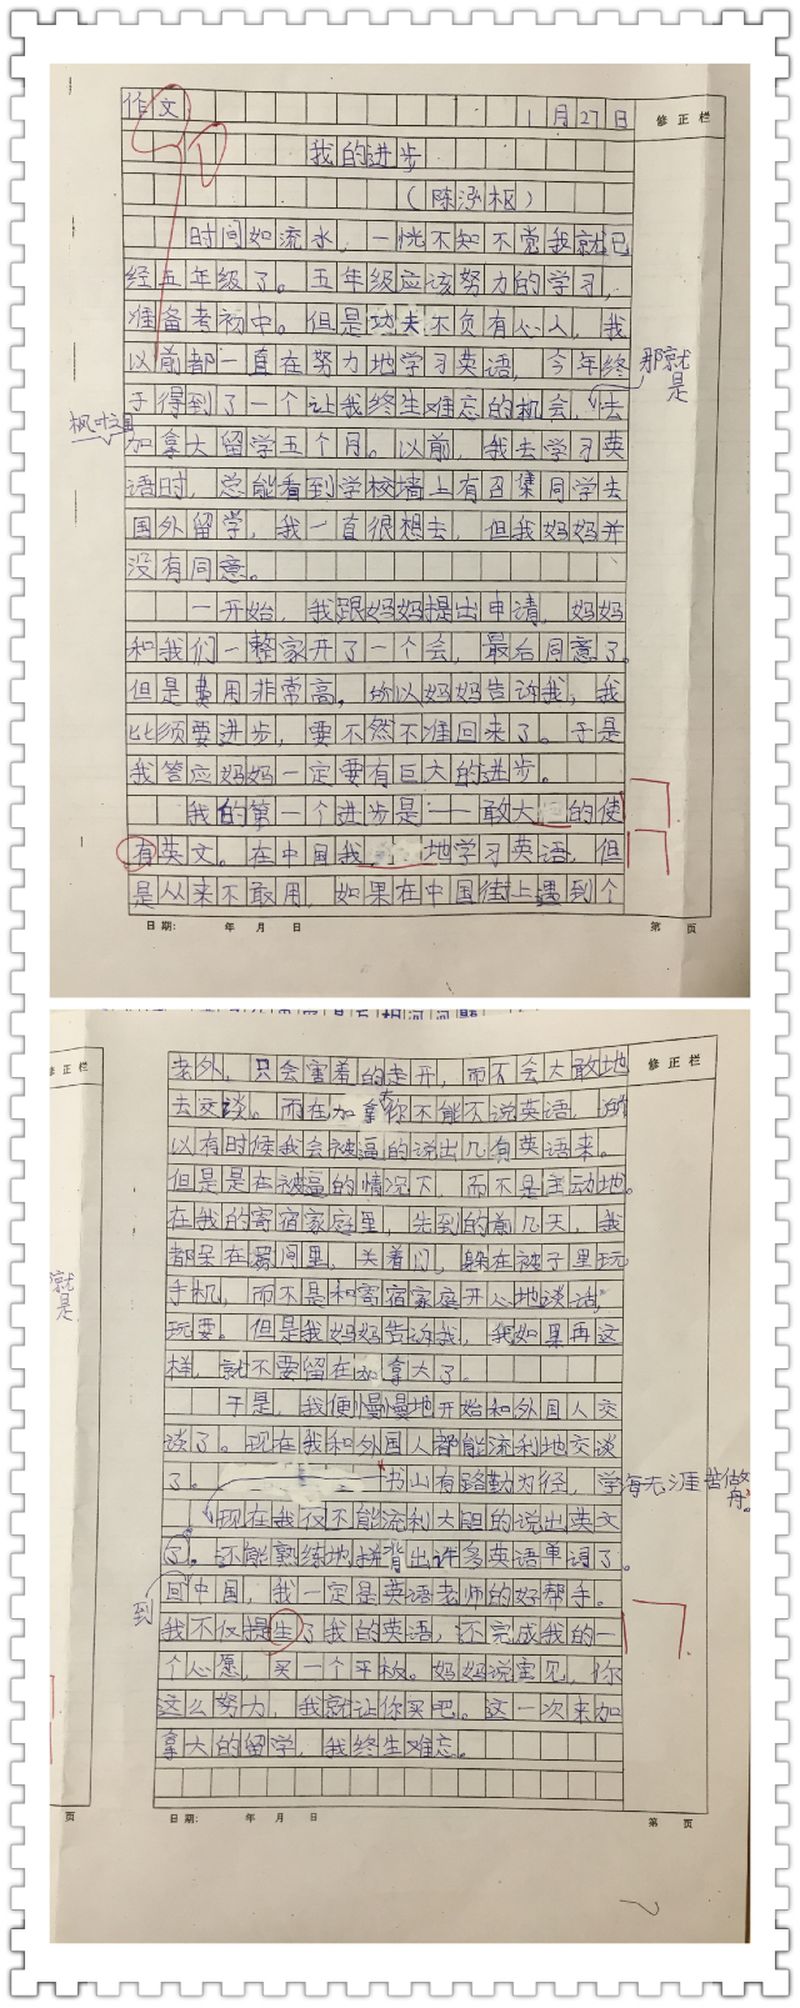 作文 1月27日 修正栏
我的进步
(陈泓枢)
时间如流水，一恍不知不觉我就已
经五年级了。五年级应该努力的学习，
准备考初中。但是功夫不负有心人，我
以前都一直在努力地学习英语，今年终
那就是
于得到了一个让我终生难忘的机会，去
枫叶之国
加拿大留学五个月。以前，我去学习英
语时，总能看到学校墙上有召集同学去
国外留学，我一直很想去，但我妈妈并
没有同意。
一开始，我跟妈妈提出申请，妈妈
和我们一整家开了一个会，最后同意了。
但是费用非常高，所以妈妈告诉我，我
比须要进步，要不然不准回来了。于是
我答应妈妈一定要有巨大的进步。
我的第一个进步是——敢大的使
有英文。在中国我地学习英语，但
是从来不敢用，如果在中国街上遇到个
日期： 年 月 日 第 页
修正栏
老外，只会害羞的走开，而不会大敢地
去交谈。而在加拿大你不能不说英语，所
以有时候我会被逼的说出几句英语来。
但是是在被逼的情况下，而不是主动地。
在我的寄宿家庭里，先到的前几天，我
都呆在房间里，关着门，躲在被子里玩
手机，而不是和寄宿家庭开心地谈话，
玩耍。但是我妈妈告诉我，我如果再这
样，就不要留在加拿大了。
于是，我便慢慢地开始和外国人交
谈了。现在我和外国人都能流利地交谈
了。书山有路勤为径，学海无涯苦做舟。
现在我仅不能流利大胆的说出英文
了。还能熟练地拼背出许多英语单词了。
回到中国，我一定是英语老师的好帮手。
我不仅提生了我的英语，还完成我的一
个心愿，买一个平板。妈妈说宝见，你
这么努力，我就让你买吧。这一次来加
拿大的留学，我终生难忘。
日期： 年 月 日 第 页
就是
页